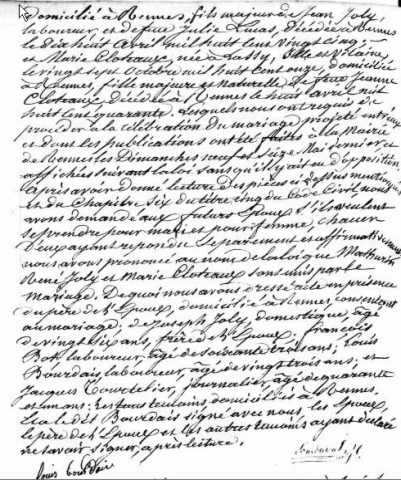 domicilié à Rennes, fils majeur de Jean Joly,
laboureur, et de feue Julie Lucas, décédée à Rennes
le dix huit Avril mil huit cent vingt cinq;
et Marie Cloteaux, née à Lassy, Ille et Vilaine,
le vingt sept Octobre mil huit cent onze, domiciliée
à Rennes, fille majeure et naturelle de feue Jeanne
Cloteaux, décédée à Rennes le avril mil
huit cent quarante. Lesquels nous ont requis de
procéder à la célébration du mariage projeté entr'eux
et dont les publications ont été faites à la Mairie
de Rennes les Dimanches neuf et Seize Mai dernier et
affichées suivant la loi sans qu'il y ait eu d'opposition.
Après avoir donné lecture des pièces ci dessus mentionnées
et du Chapitre Six du titre cinq du Code Civil, nous
avons demandé aux futurs Epoux s'ils veulent
se prendre pour mari et pour femme; chacun
d'eux ayant répondu Séparément et affirmativement
nous avons prononcé au nom de la loi que Mathurin
René Joly et Marie Cloteaux sont unis par le
mariage. De quoi nous avons dressé acte en présence
du père de l'Epoux, domicilié à Rennes, consentant
au mariage; de Joseph Joly, domestique, âgé
de vingt six ans, frère de l'Epoux; françois
Bot, laboureur, âgé de soixante trois ans; Louis
Bourdais, laboureur, âgé de vingt trois ans; et
Jacques Tourtelier, journalier, âgé de quarante
et un ans; les tous témoins domiciliés à Rennes.
Et a le dit Bourdais signé avec nous, les Epoux,
le père de l'Epoux et les autres témoins ayant déclaré
ne savoir signer, après lecture.
louis bourdais